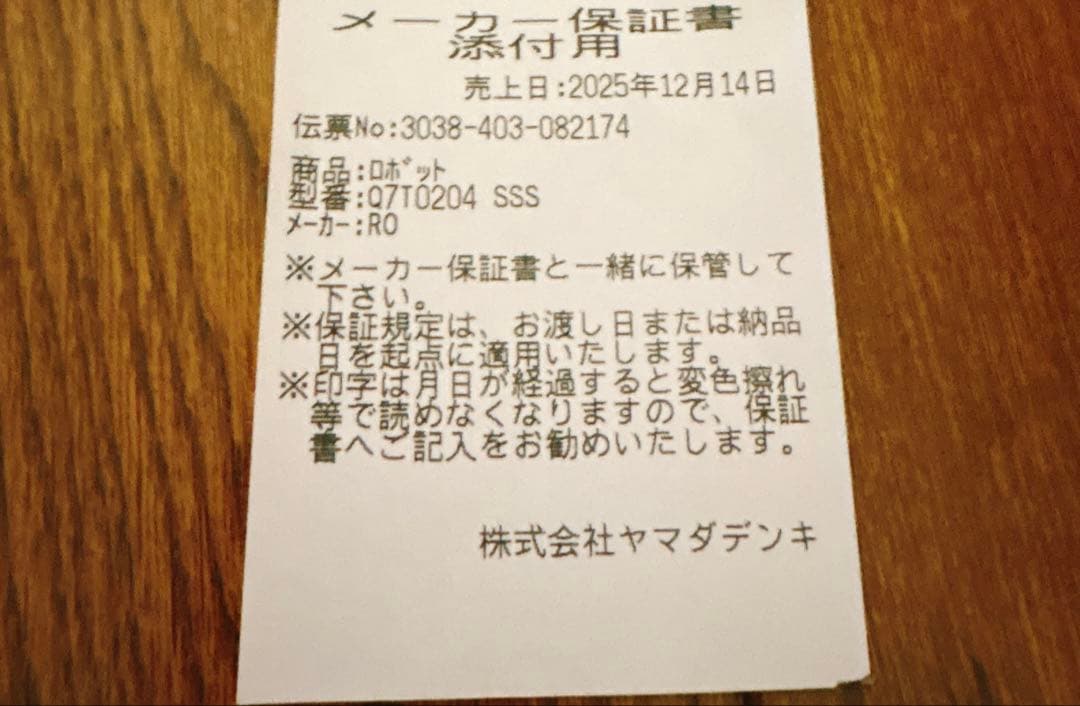 メーカー保証書
添付用
売上日:2025年12月14日
伝票No:3038-403-082174
商品:ﾛﾎﾞｯﾄ
型番:Q7T0204 SSS
ﾒｰｶｰ:RO
※メーカー保証書と一緒に保管して
下さい。
※保証規定は、お渡し日または納品
日を起点に適用いたします。
※印字は月日が経過すると変色擦れ
等で読めなくなりますので、保証
書へご記入をお勧めいたします。
株式会社ヤマダデンキ